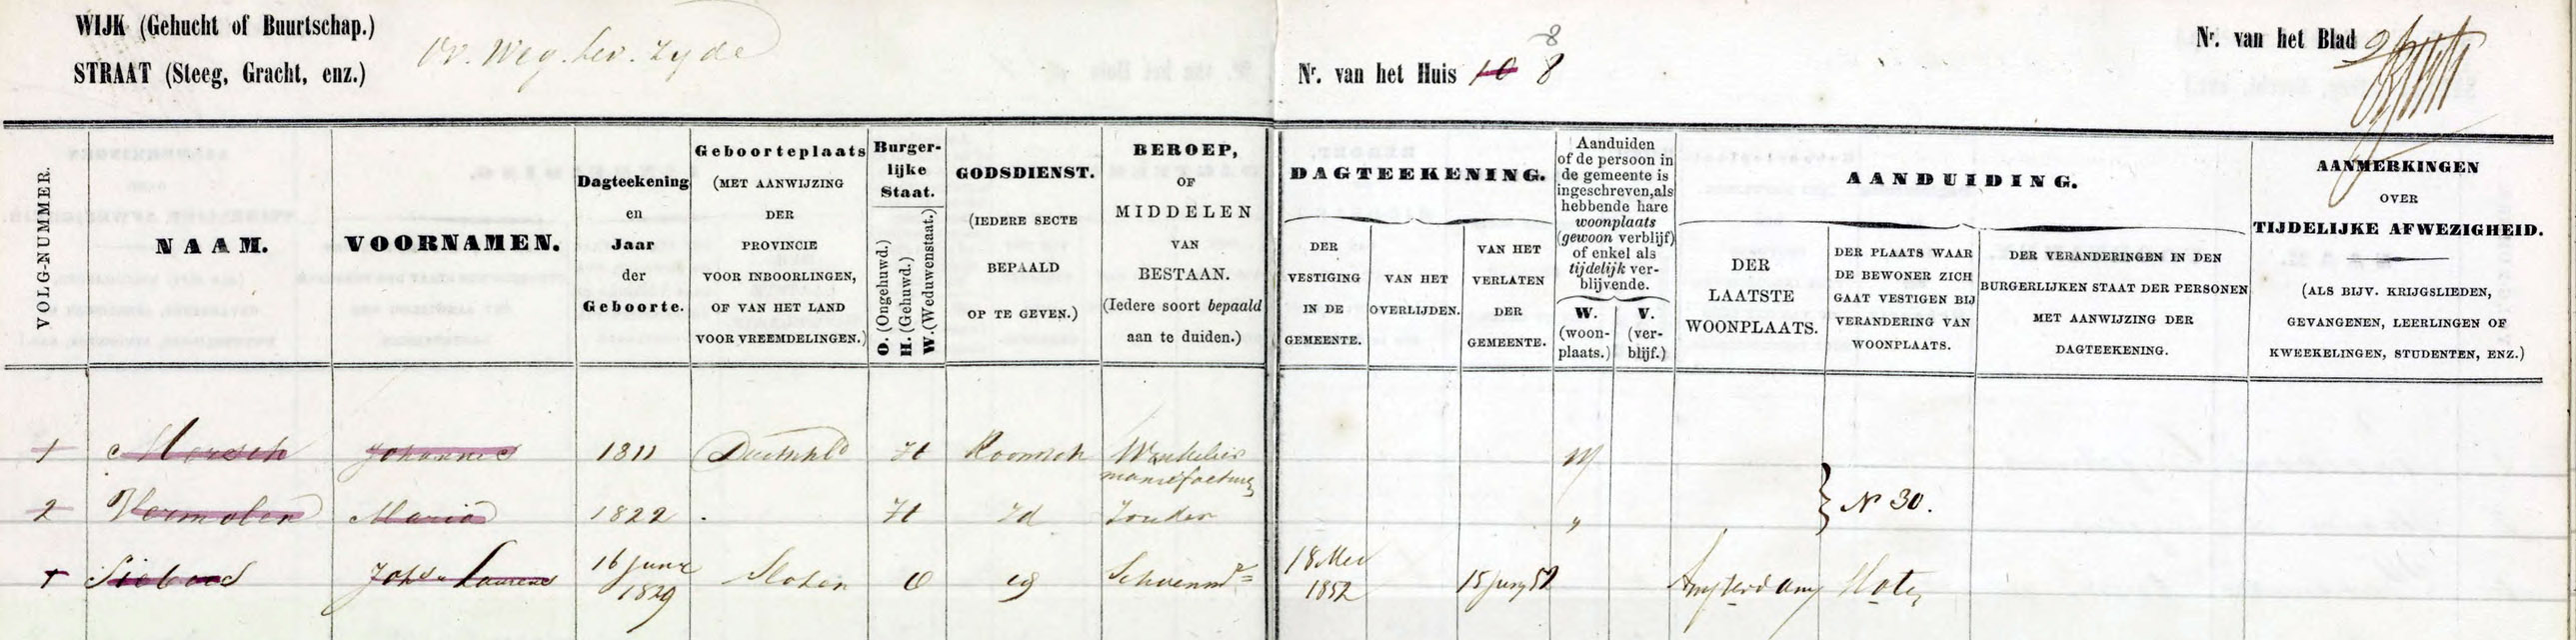 WIJK (Gehucht of Buurtschap.)
STRAAT (Steeg, Gracht, enz.)
Ov. Weg. bev. Zyde
Nr. van het Huis 10 8
8
Nr. van het Blad
VOLG-NUMMER.
NAAM.
VOORNAMEN.
Dagteekening
en
Jaar
der
Geboorte.
Geboorteplaats
(MET AANWIJZING
DER
PROVINCIE
VOOR INBOORLINGEN,
OF VAN HET LAND
VOOR VREEMDELINGEN.)
Burger-
lijke
Staat.
O. (Ongehuwd.)
H. (Gehuwd.)
W. (Weduwenstaat.)
GODSDIENST.
(IEDERE SECTE
BEPAALD
OP TE GEVEN.)
BEROEP,
OF
MIDDELEN
VAN
BESTAAN.
(Iedere soort bepaald
aan te duiden.)
DAGTEEKENING.
DER
VESTIGING
IN DE
GEMEENTE.
VAN HET
OVERLIJDEN.
VAN HET
VERLATEN
DER
GEMEENTE.
Aanduiden
of de persoon in
de gemeente is
ingeschreven, als
hebbende hare
woonplaats
(gewoon verblijf)
of enkel als
tijdelijk ver-
blijvende.
W.
(woon-
plaats.)
V.
(ver-
blijf.)
AANDUIDING.
DER
LAATSTE
WOONPLAATS.
DER PLAATS WAAR
DE BEWONER ZICH
GAAT VESTIGEN BIJ
VERANDERING VAN
WOONPLAATS.
DER VERANDERINGEN IN DEN
BURGERLIJKEN STAAT DER PERSONEN
MET AANWIJZING DER
DAGTEEKENING.
AANMERKINGEN
OVER
TIJDELIJKE AFWEZIGHEID.
(ALS BIJV. KRIJGSLIEDEN,
GEVANGENEN, LEERLINGEN OF
KWEEKELINGEN, STUDENTEN, ENZ.)
1 Mersch Johannes 1811 Duitschld H Roomsch Winkelier W
manufacturen
2 Vermolen Maria 1822 H Id Zonder " N 30.
Siebers Johs Laurens 16 Juny 1829 Sloten O 18 Mei 1852 15 Juny 52 Amsterdam Sloten